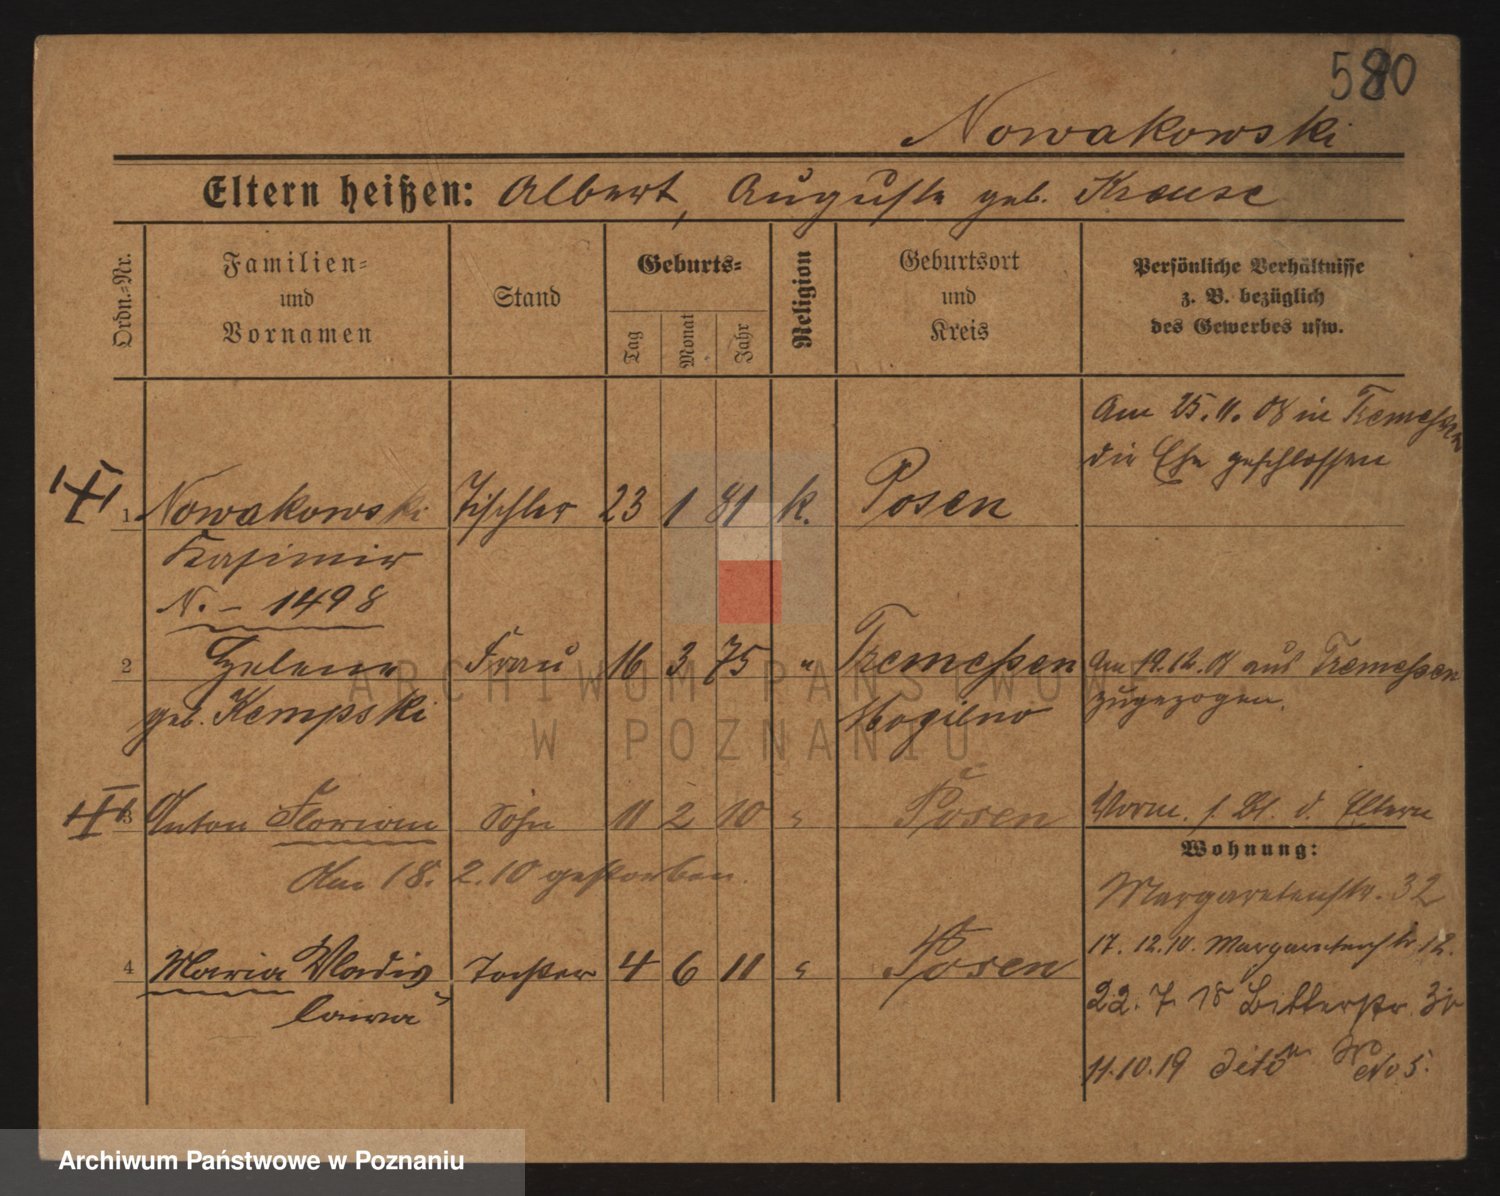 580
Nowakowski
Eltern heißen: Albert, Auguste geb. Krause
Ordn.-Nr.
Familien-
und
Vornamen
Stand
Geburts-
Tag
Monat
Jahr
Religion
Geburtsort
und
Kreis
Persönliche Verhältnisse
z. B. bezüglich
des Gewerbes usw.
Am 25. 11. 08 in Tremessen
die Ehe geschlossen
1 Nowakowski Tischler 23 1 81 k. Posen
Kasimir
N. – 1498
2 Helene Frau 16 3 75 " Tremessen Am 19.12.08 aus Tremessen
geb. Kempski Mogilno zugezogen.
3 Anton Florian Sohn 11 2 10 " Posen Vorm. s. Bl. d. Eltern
Am 18. 2. 10 gestorben.
Wohnung:
Margaretenstr. 32
17. 12. 10. Margaretenstr. 12.
4 Maria Vladis Tochter 4 6 11 " Posen
lawa
22. 7. 18 Bitterstr.
11.10.19 dito No 5.
ARCHIWUM PAŃSTWOWE
W POZNANIU
Archiwum Państwowe w Poznaniu